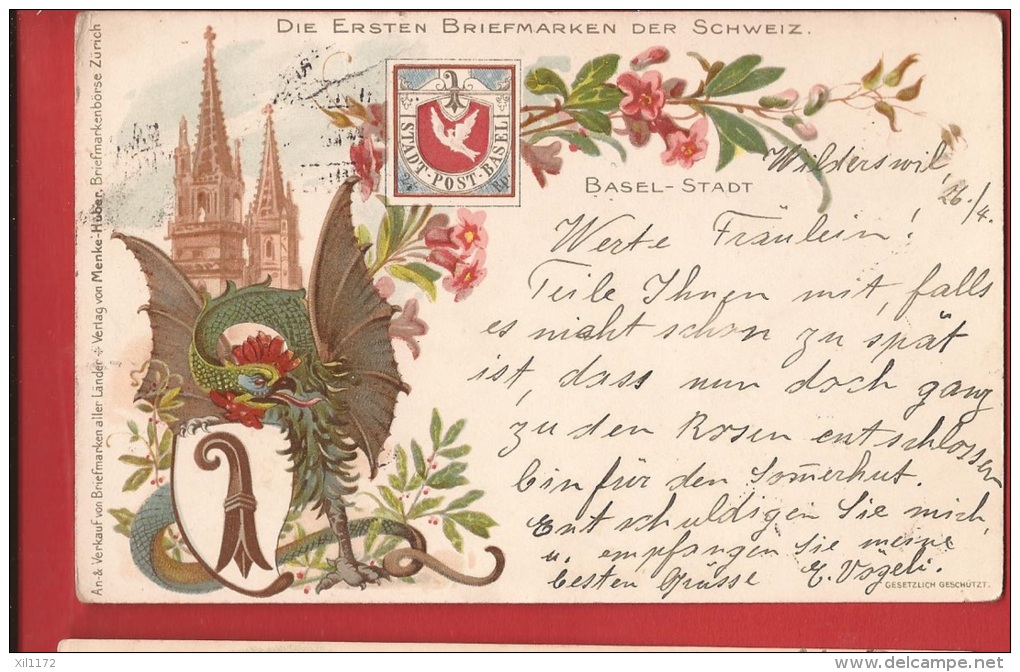 DIE ERSTEN BRIEFMARKEN DER SCHWEIZ.
An- & Verkauf von Briefmarken aller Länder ✢ Verlag von Menke-Huber, Briefmarkenbörse Zürich
STADT-POST-BASEL
2½ Rp.
BASEL-STADT
Wilderswil,
26./4.
Werte Fräulein!
Teile Ihnen mit, falls
es nicht schon zu spät
ist, dass nun doch ganz
zu den Rosen entschlossen
bin für den Som̄erhut.
Entschuldigen Sie mich,
u. empfangen Sie meine
besten Grüsse E. Vögeli.
GESETZLICH GESCHÜTZT.
xil1172
delcampe.net